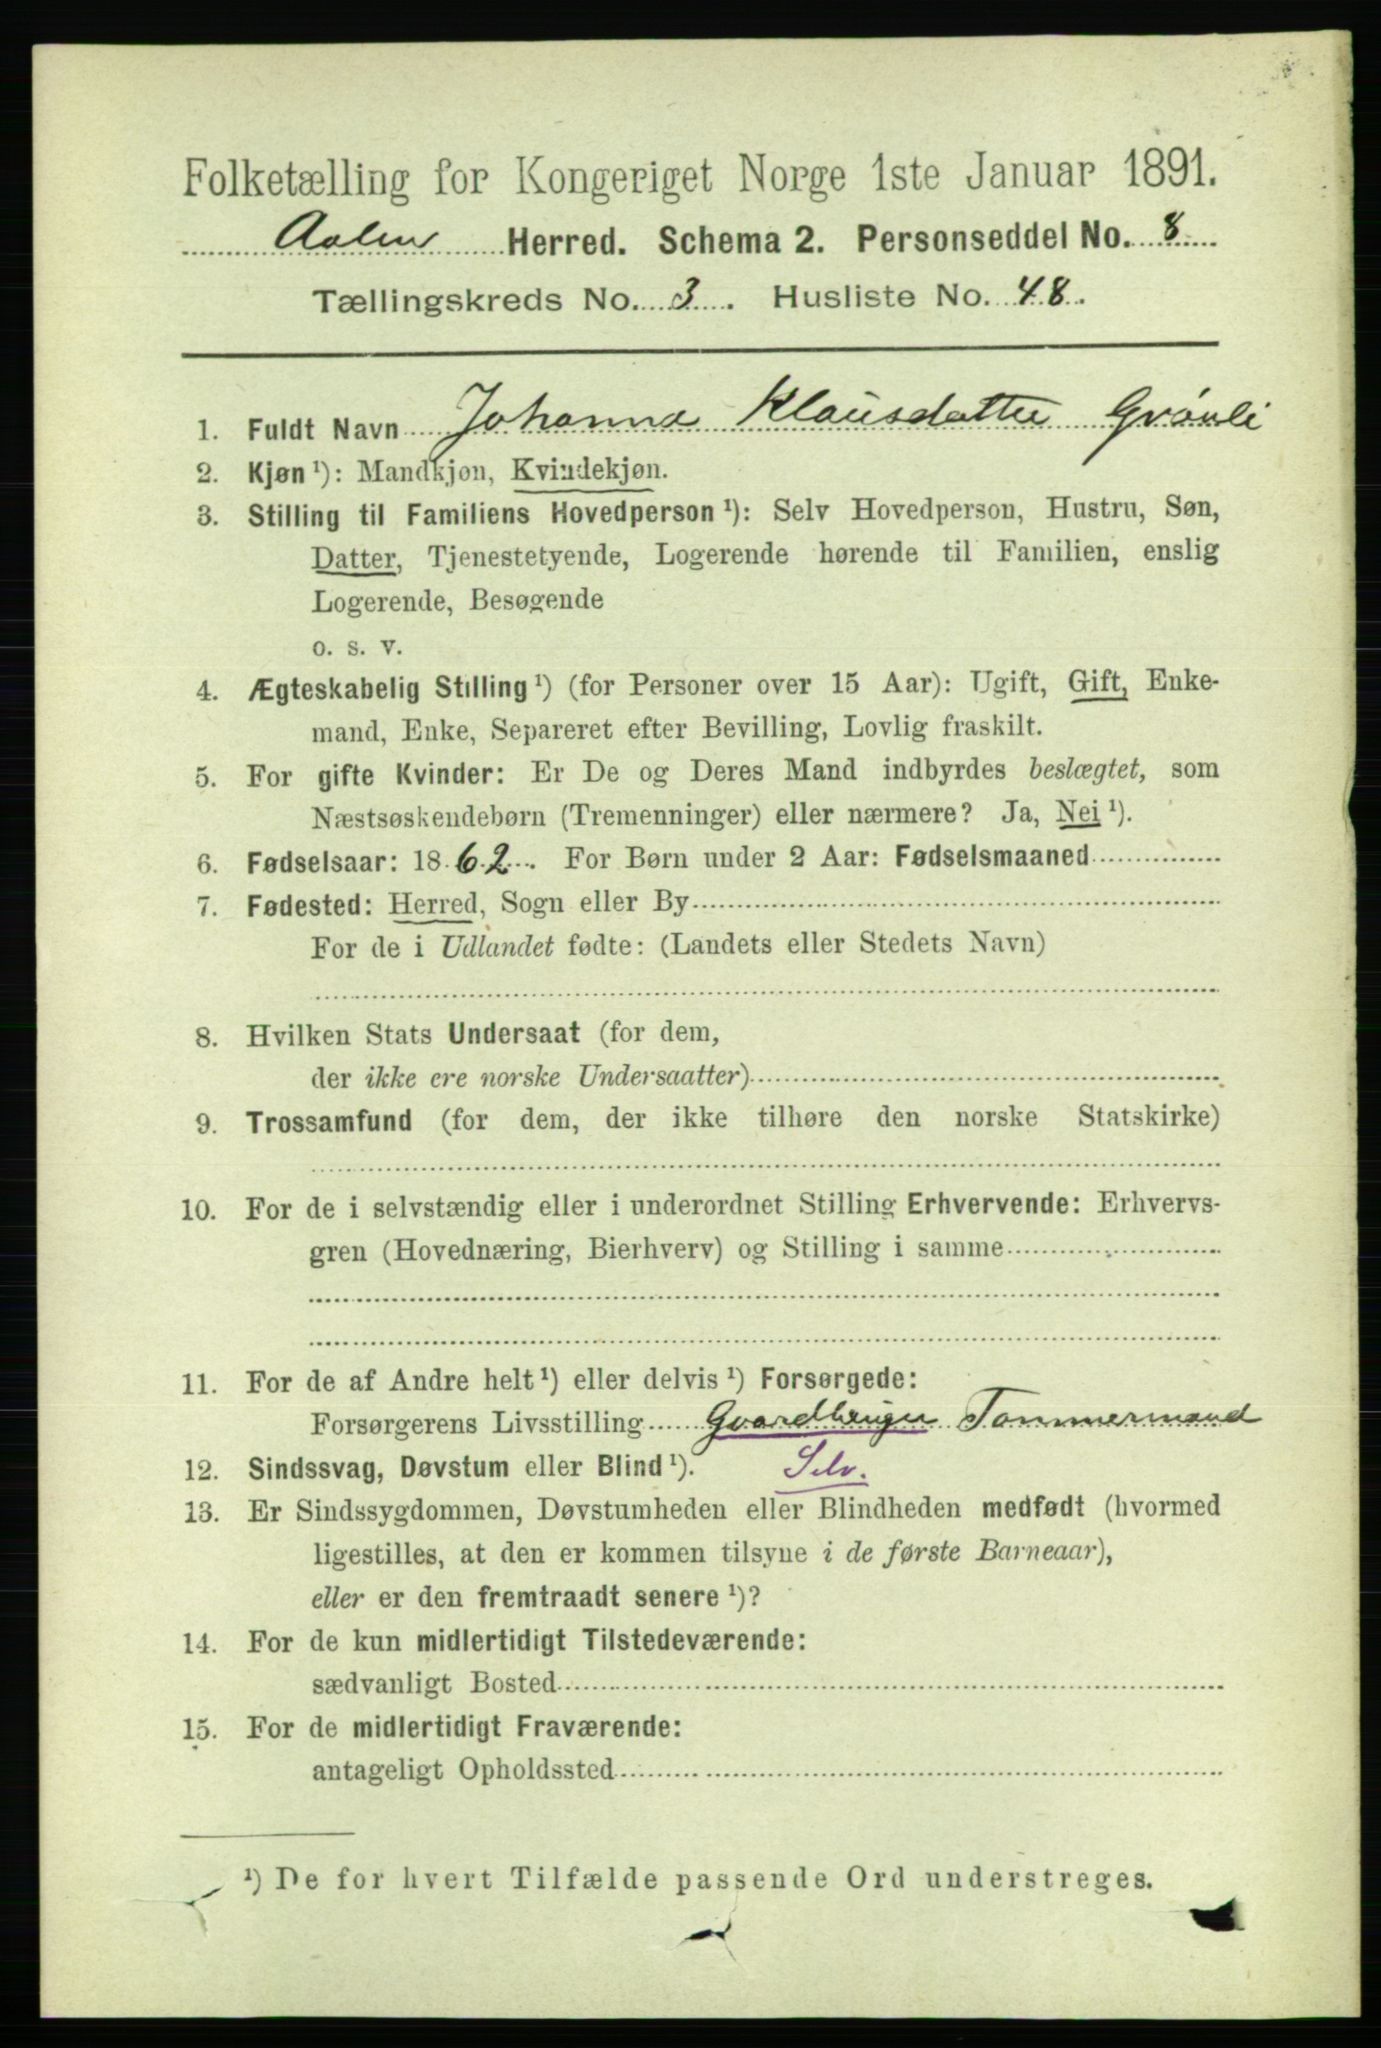 Folketælling for Kongeriget Norge 1ste Januar 1891.
Aalen Herred. Schema 2. Personseddel No. 8
Tællingskreds No. 3. Husliste No. 48.
1. Fuldt Navn Johanna Klausdatter Grønli
2. Kjøn ¹): Mandkjøn, Kvindekjøn.
3. Stilling til Familiens Hovedperson ¹): Selv Hovedperson, Hustru, Søn,
Datter, Tjenestetyende, Logerende hørende til Familien, enslig
Logerende, Besøgende
o. s. v.
4. Ægteskabelig Stilling ¹) (for Personer over 15 Aar): Ugift, Gift, Enke-
mand, Enke, Separeret efter Bevilling, Lovlig fraskilt.
5. For gifte Kvinder: Er De og Deres Mand indbyrdes beslægtet, som
Næstsøskendebørn (Tremenninger) eller nærmere? Ja, Nei ¹).
6. Fødselsaar: 1862. For Børn under 2 Aar: Fødselsmaaned
7. Fødested: Herred, Sogn eller By
For de i Udlandet fødte: (Landets eller Stedets Navn)
8. Hvilken Stats Undersaat (for dem,
der ikke ere norske Undersaatter)
9. Trossamfund (for dem, der ikke tilhøre den norske Statskirke)
10. For de i selvstændig eller i underordnet Stilling Erhvervende: Erhvervs-
gren (Hovednæring, Bierhverv) og Stilling i samme
11. For de af Andre helt ¹) eller delvis ¹) Forsørgede:
Forsørgerens Livsstilling Gaardbruger Tømmermand
12. Sindssvag, Døvstum eller Blind ¹). Selv.
13. Er Sindssygdommen, Døvstumheden eller Blindheden medfødt (hvormed
ligestilles, at den er kommen tilsyne i de første Barneaar),
eller er den fremtraadt senere ¹)?
14. For de kun midlertidigt Tilstedeværende:
sædvanligt Bosted
15. For de midlertidigt Fraværende:
antageligt Opholdssted
¹) De for hvert Tilfælde passende Ord understreges.